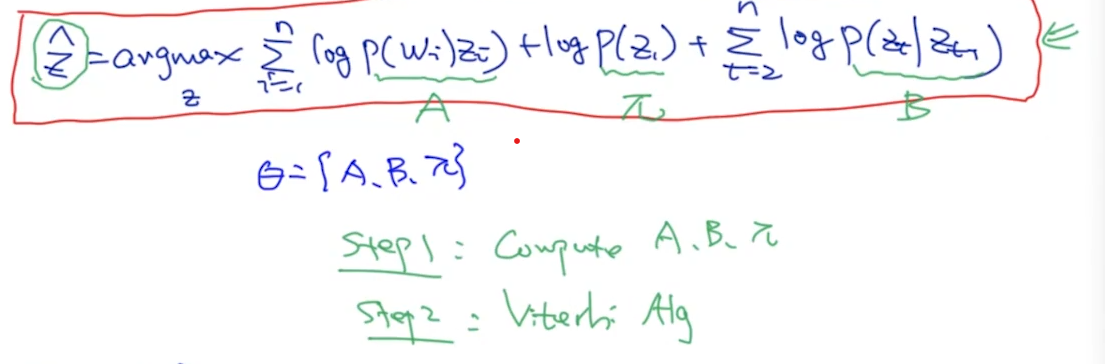 ẑ = argmax_z Σ_{i=1}^{n} log p(w_i|z_i) + log p(z_1) + Σ_{t=2}^{n} log p(z_t|z_{t-1})
A π B
θ = {A、B、π}
Step1 : Compute A、B、π
Step2 : Viterbi Alg